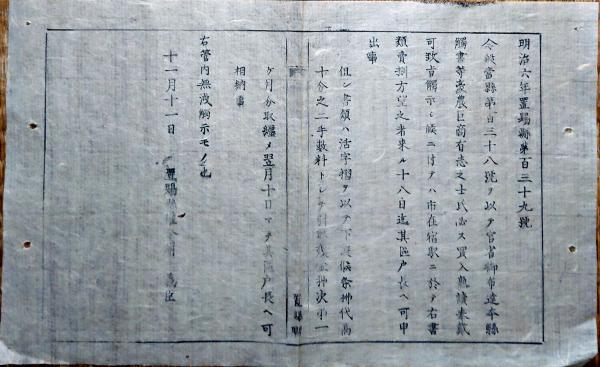 明治六年置賜縣第百三十九號
今般當縣第百三十八號ヲ以テ官省御布達本縣
觸書等豪農巨商有志之士民必ス買入熟讀奉戴
可致旨觸示シ候ニ付テハ市在宿駅ニ於テ右書
類賣捌方望之者来ル十八日迄其區戸長ヘ可申
出事
但シ書類ハ活字摺ヲ以テ下 候条拂代高
十分之二手数料トシテ引 残金拂次第一
ケ月分取纏メ翌月十日マテ其區戸長ヘ可
相納事
右管内無洩觸示モノ也
十一月十一日 置賜
置賜縣